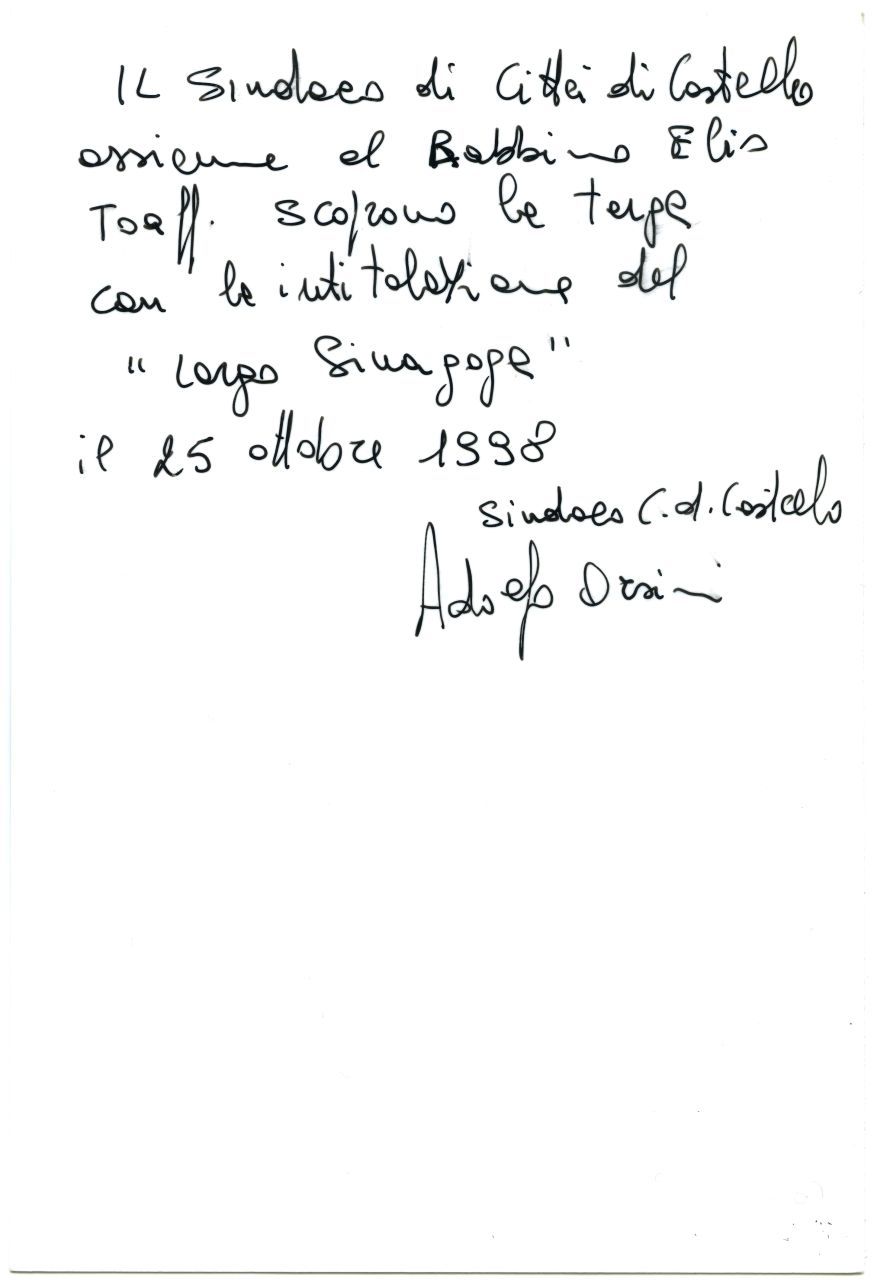 IL Sindaco di Città di Castello
assieme al Rabbino Elio
Toaff. scoprono la targa
con la intitolazione del
"Largo Sinagoga"
il 25 ottobre 1998
Sindaco C.d.Castello
Adolfo Orsini